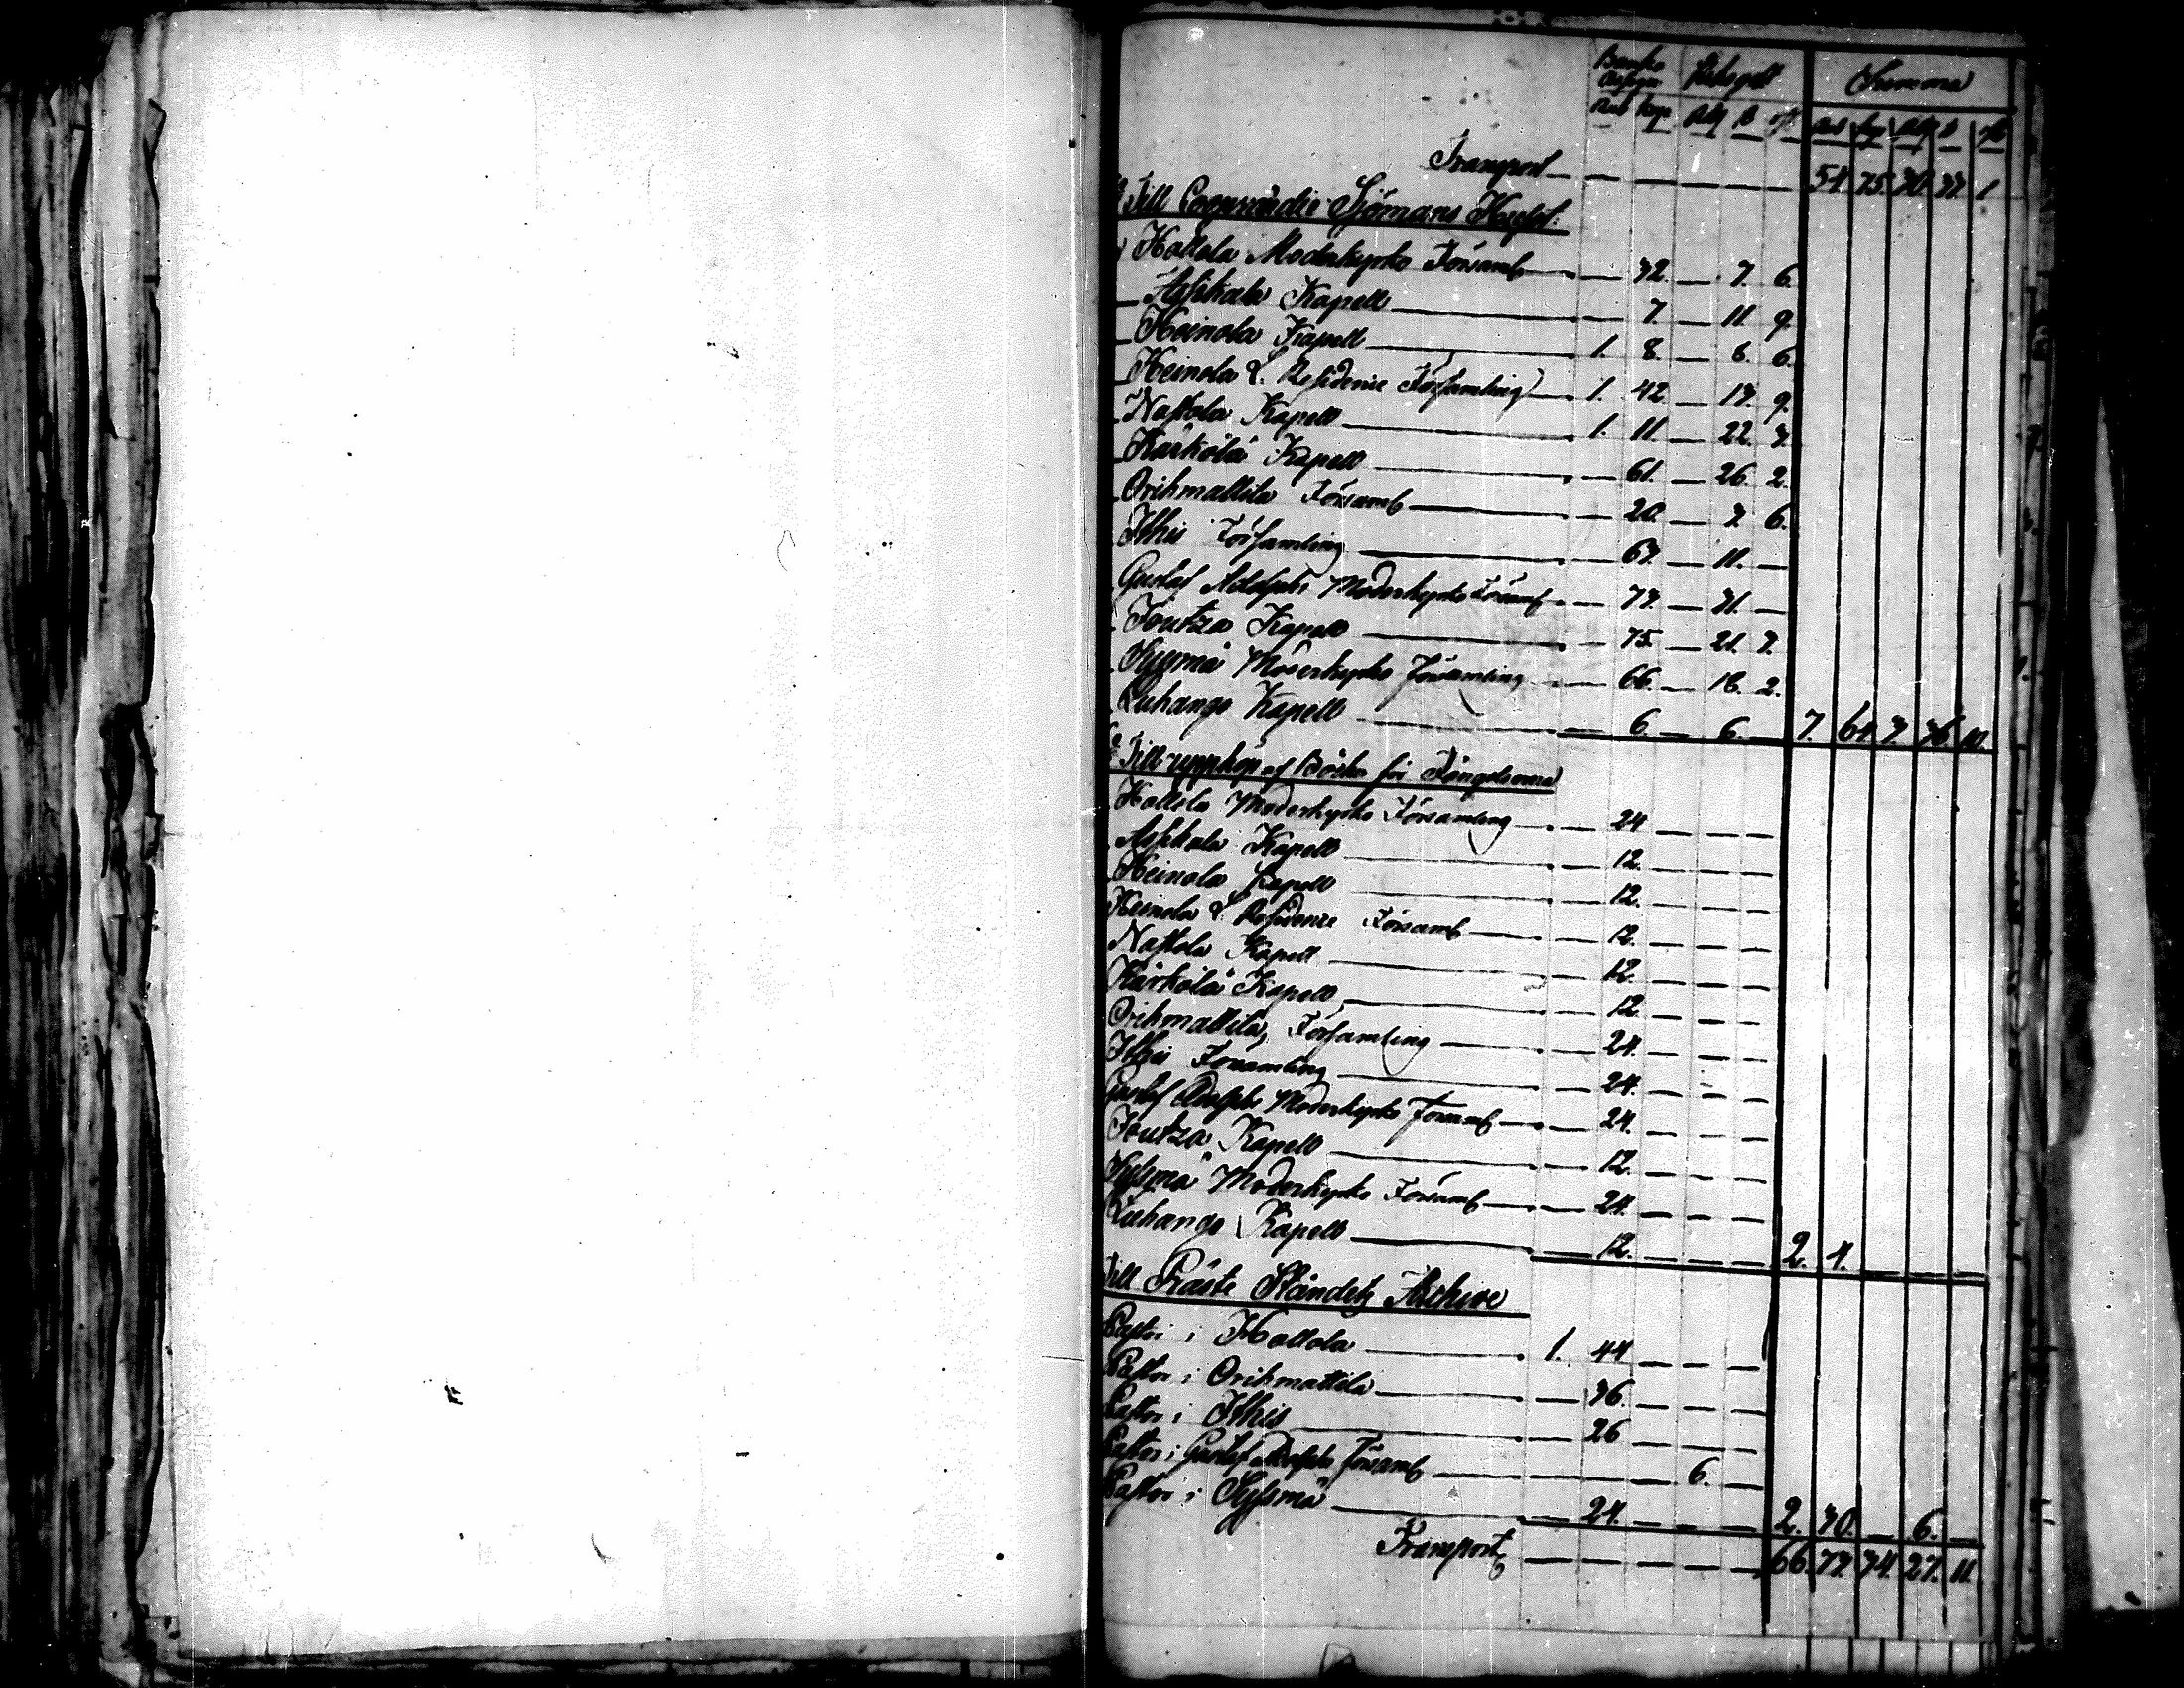 Banko Riksgeld Summa
Rub kop Rdr ß rst Rub kop Rdr ß rst
Transport — — — — — 54. 75. 30. 37. 1
Till Sjömans Huset.
Hollola Moderkyrko Församl — 32. — 7. 6.
Asikkala Kapell — 7. — 11. 9.
Heinola Kapell 1. 8. — 8. 6.
Heinola L. Residence Församling 1. 42. — 13. 9.
Nastola Kapell 1. 11. — 22. 3.
Kärkölä Kapell — 61. — 26. 2.
Orihmattila Församl — 20. — 3. 6.
Ithis Församling — 63. — 11. —
Gustaf Adolphs Moderkyrko Församl — 73. — 31. —
Joutza Kapell — 75. — 21. 3.
Sysmä Moderkyrko Församling — 66. — 18. 2.
Luhango Kapell — 6. — 6. — 7. 64. 3. 36. 10.
Till uppköp af Böcker för Fångelserna
Hollola Moderkyrko Församling — 24 — — —
Asikkala Kapell — 12. — — —
Heinola Kapell — 12. — — —
Heinola L. Residence Församl — 12. — — —
Nastola Kapell — 12. — — —
Kärkölä Kapell — 12 — — —
Orihmattila Församling — 24. — — —
Ithis Församling — 24. — — —
Gustaf Adolphs Moderkyrko Församl — 24. — — —
Joutza Kapell — 12. — — —
Sysmä Moderkyrko Församl — 24. — — —
Luhango Kapell — 12. — — — 2. 4. — — —
Till Präste Ståndets Archive
Pastor i Hollola 1. 44 — — —
Pastor i Orihmattila — 36. — — —
Pastor i Ithis — 26 — — —
Pastor i Gustaf Adolphs Församl — — — 6. —
Pastor i Sysmä — 24. — — — 2. 30. — 6. —
Transport — — — — — 66. 73. 34. 27. 11.